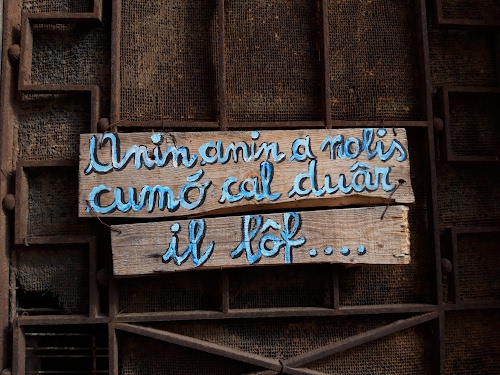 Anin anin a nolis
cumó cal duâr
il lôf....